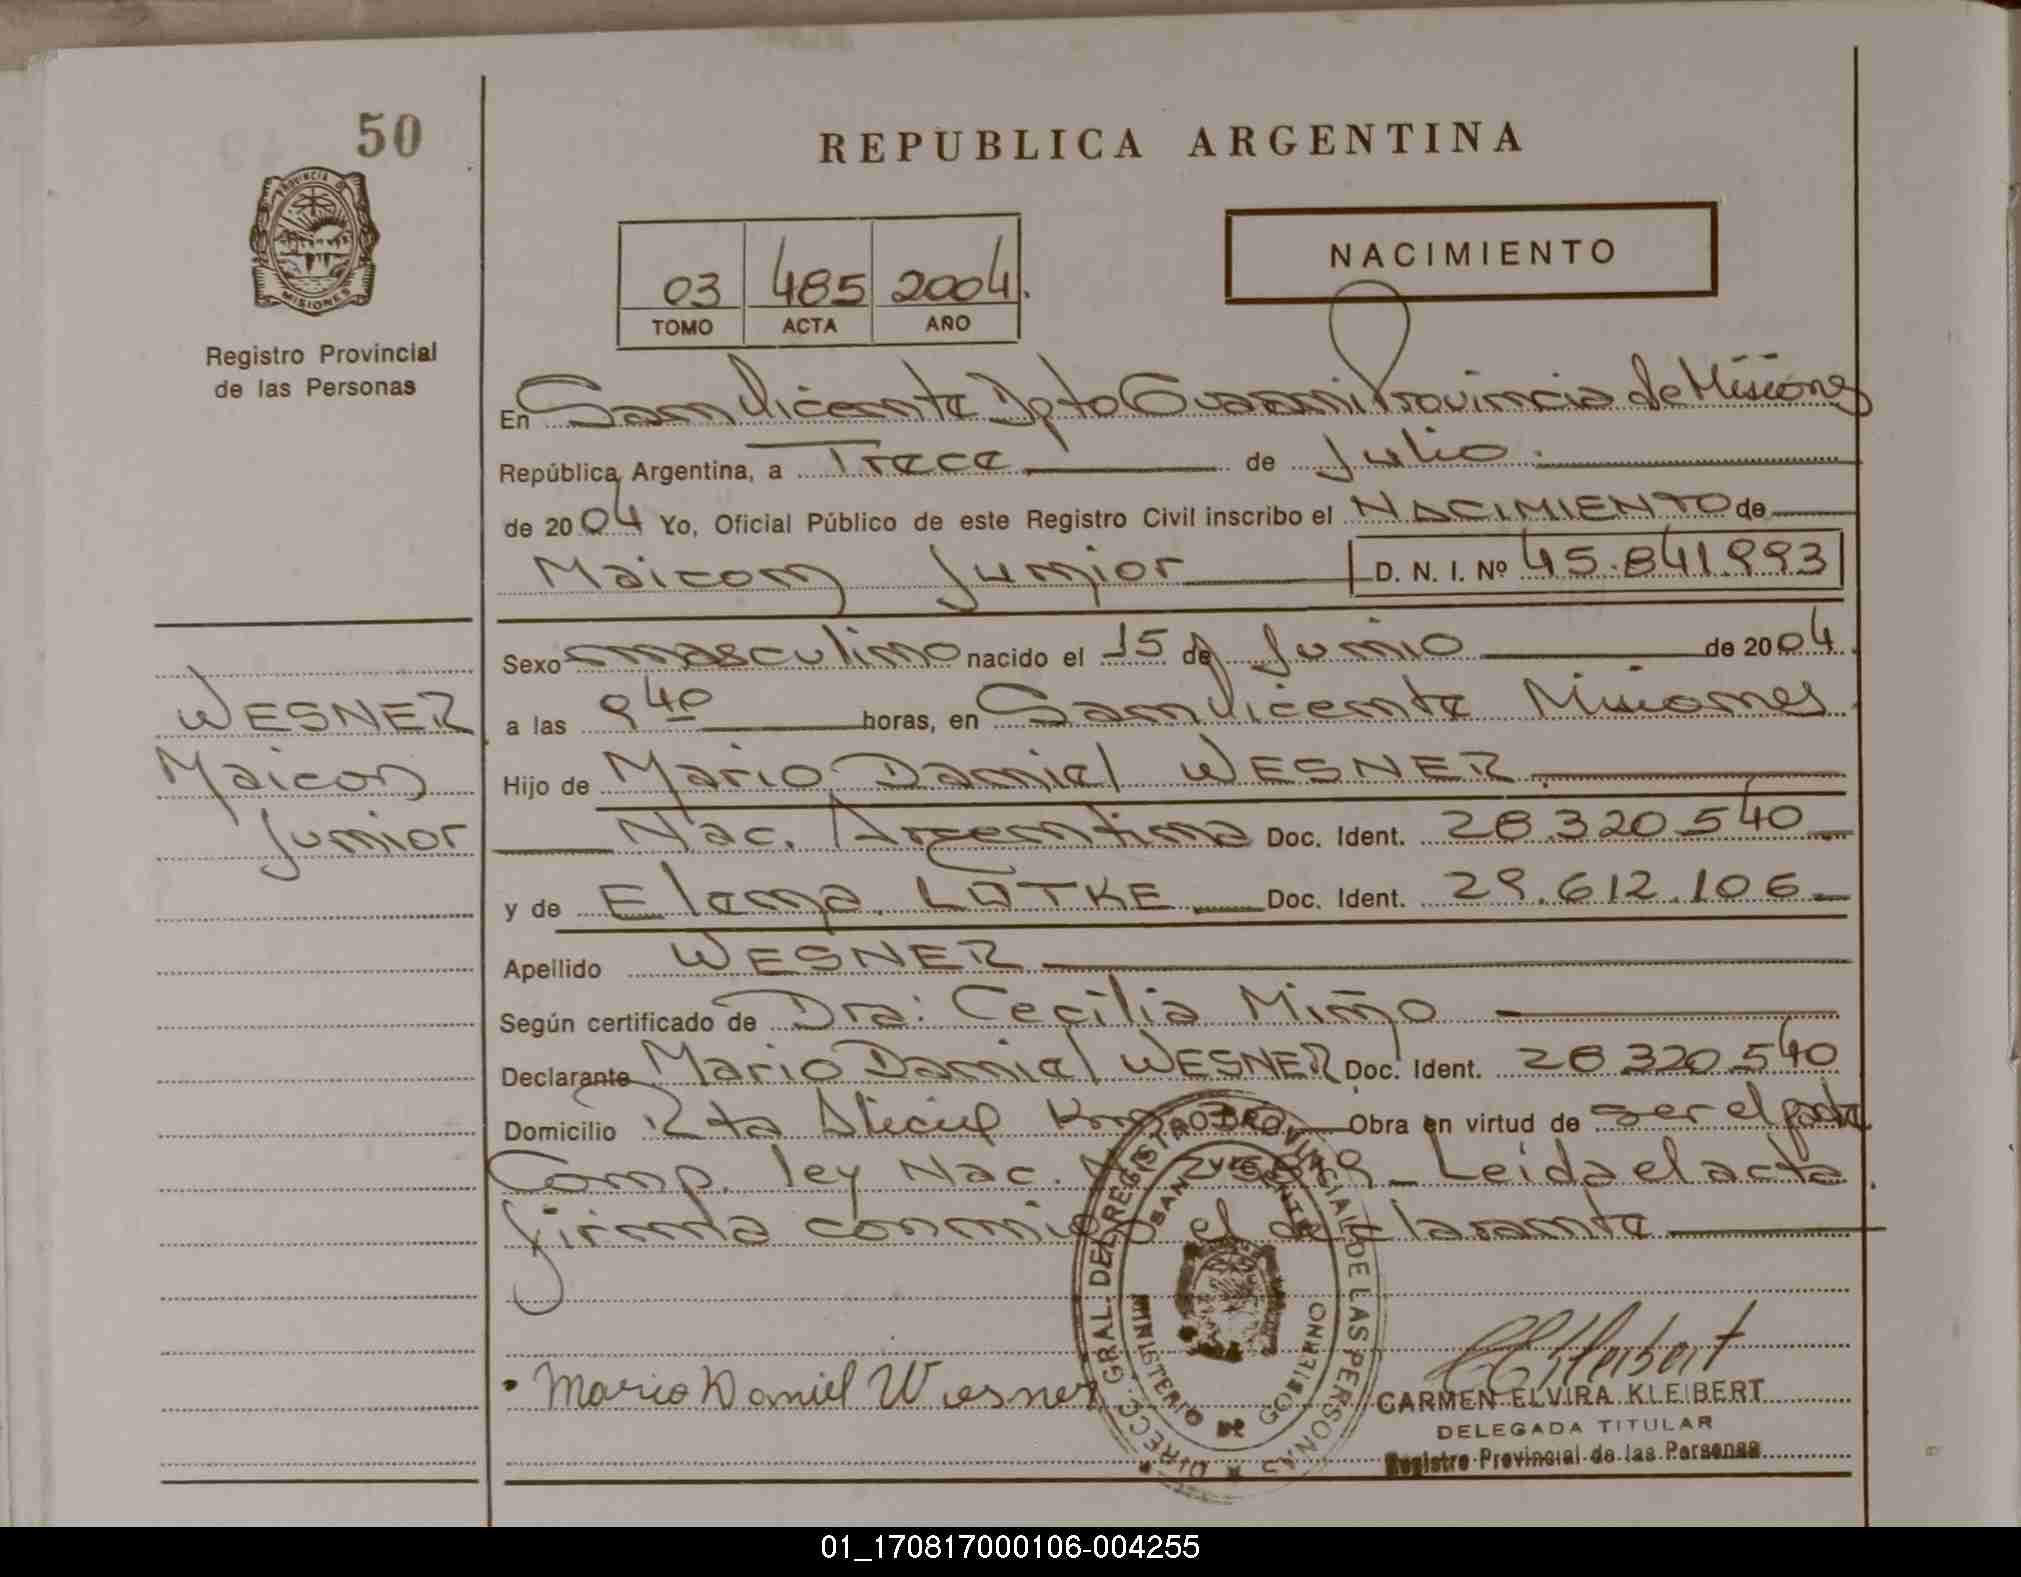 50
REPUBLICA ARGENTINA
PROVINCIA DE
MISIONES
Registro Provincial
de las Personas
03 485 2004.
TOMO ACTA AÑO
NACIMIENTO
En San Vicente Dpto Guaraní Provincia de Misiones
República Argentina, a Trece de Julio.
de 2004 Yo, Oficial Público de este Registro Civil inscribo el NACIMIENTO de
Maicon Junior D. N. I. Nº 45.841.993
Sexo masculino nacido el 15 de Junio de 2004
a las 9 40 horas, en San Vicente Misiones
Hijo de Mario Daniel WESNER
Nac. Argentina Doc. Ident. 28.320.540
y de Elena LÜTKE Doc. Ident. 29.612.106
Apellido WESNER
Según certificado de Dra: Cecilia Miño
Declarante Mario Daniel WESNER Doc. Ident. 28.320.540
Domicilio Rta Obra en virtud de ser el padre
Comp. ley Nac. Leida el acta
firma conmigo el declarante
WESNER
Maicon
Junior
DIRECC. GRAL. DEL REGISTRO PROVINCIAL DE LAS PERSONAS
SAN VICENTE
MINISTERIO DE GOBIERNO
Mario Daniel Wesner
CARMEN ELVIRA KLEIBERT
DELEGADA TITULAR
Registro Provincial de las Personas
01_170817000106-004255